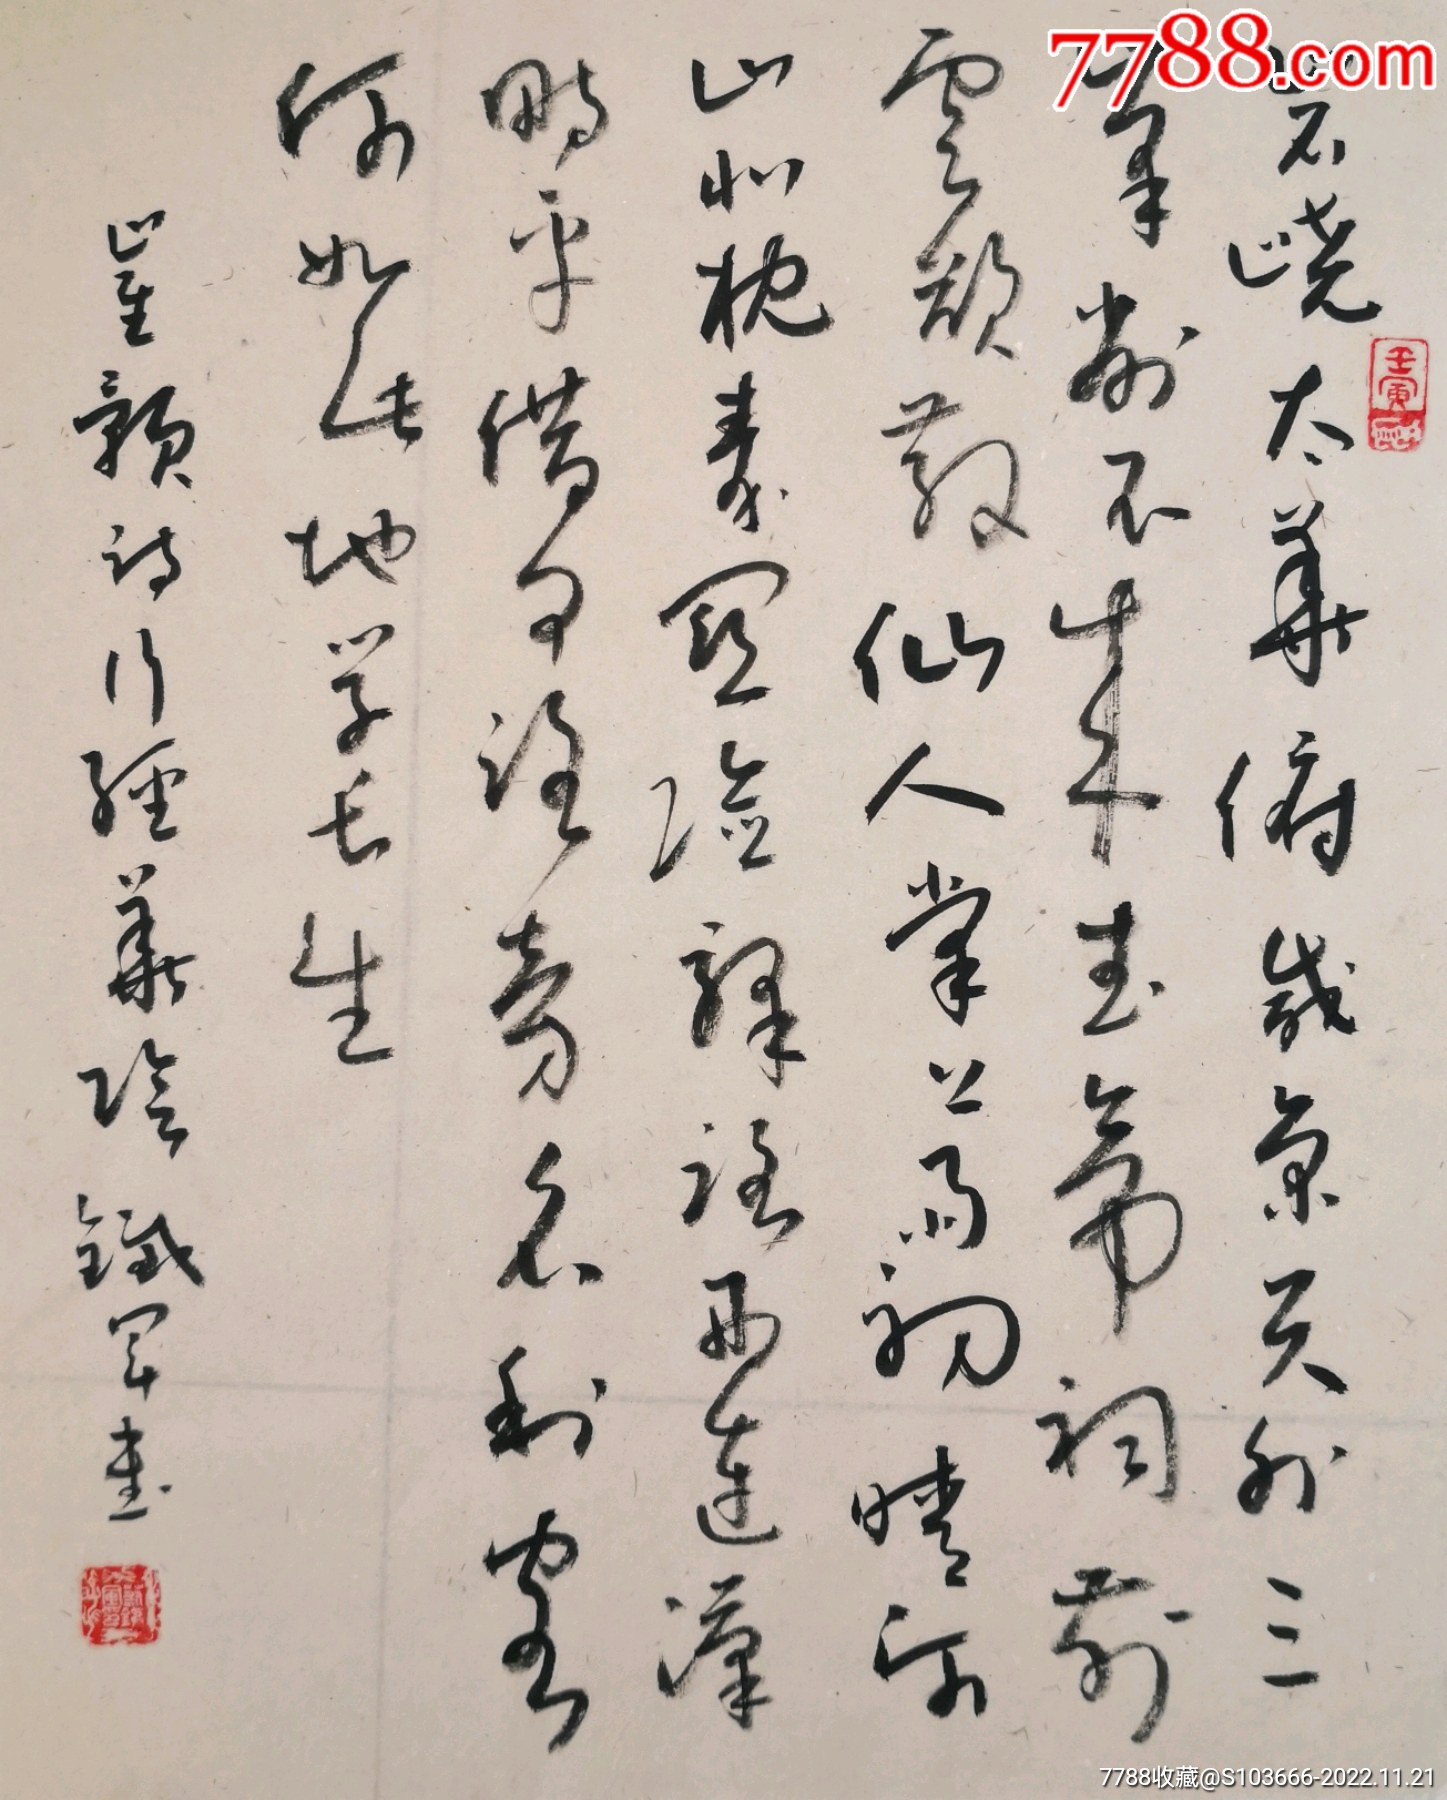 7788.com
岧嶢太華俯咸京天外三
峯削不成武帝祠前
雲欲散仙人掌上雨初晴河
山北枕秦關險驛路西連漢
畤平借問路旁名利客
何如此地学長生
崔顥詩行經華陰 鐵軍書
壬寅
7788收藏@S103666-2022.11.21